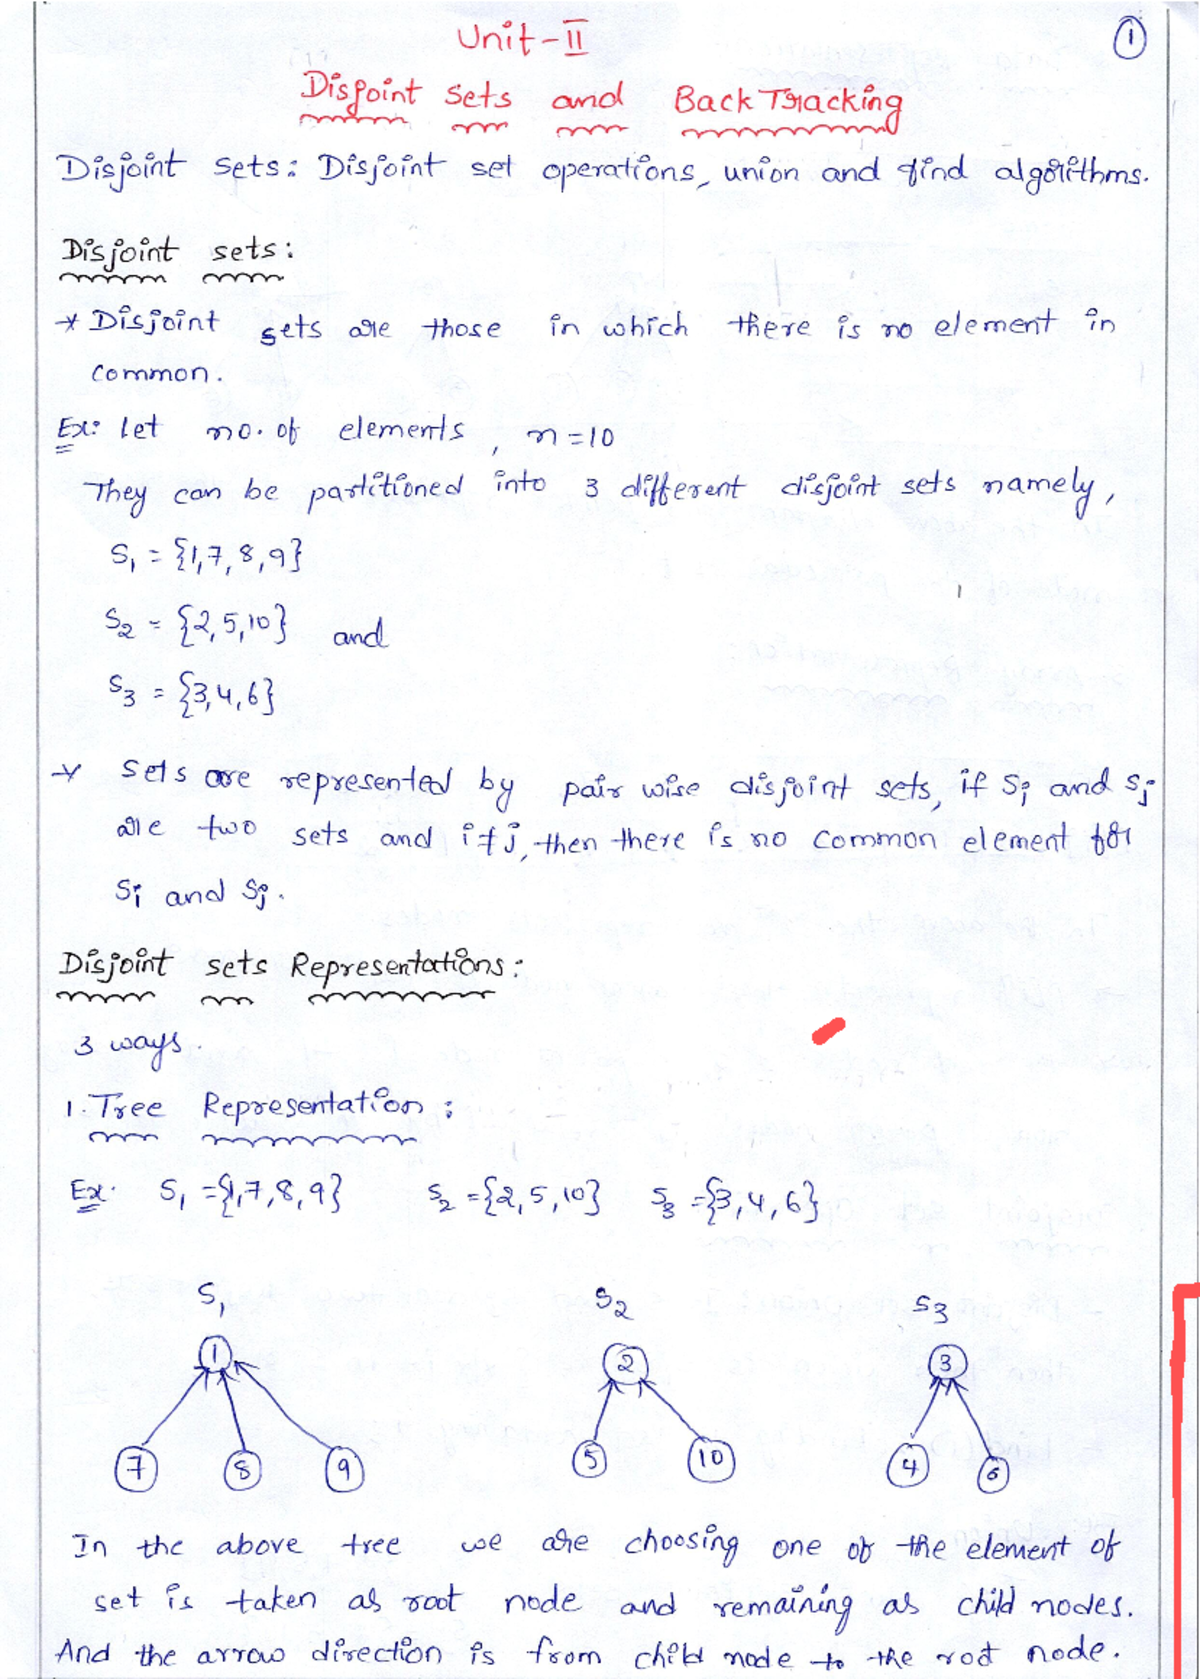 Unit-II
1
Disjoint sets and Back Tracking
Disjoint sets: Disjoint set operations, union and find algorithms.
Disjoint sets:
* Disjoint sets are those in which there is no element in
common.
Ex: let no. of elements, n=10
They can be partitioned into 3 different disjoint sets namely,
S1 = {1,7,8,9}
S2 = {2,5,10} and
S3 = {3,4,6}
* Sets are represented by pair wise disjoint sets, if Si and Sj
are two sets and i≠j, then there is no common element for
Si and Sj.
Disjoint sets Representations:
3 ways.
1. Tree Representation:
Ex. S1 = {1,7,8,9} S2 = {2,5,10} S3 = {3,4,6}
S1 S2 S3
1 2 3
7 8 9 5 10 4 6
In the above tree we are choosing one of the element of
set is taken as root node and remaining as child nodes.
And the arrow direction is from child node to the root node.